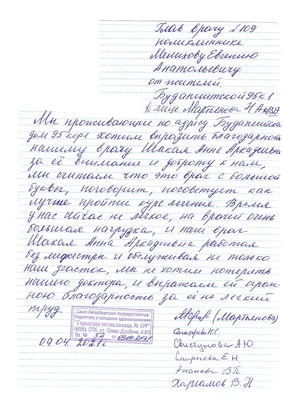 Глав врачу №109
поликлиннике
Мелихову Евгению
Анатольевичу
от жителей
Будапештской 95 к 1
в лице Мартьянова
Мы проживающие по адресу Будапештская
дом 95 кор1 хотим выразить благодарность
нашему врачу Шакая Анне Аркадьевне
за её внимание и доброту к нам,
мы считаем что это врач с большой
буквы, поговорит, посоветует как
лучше пройти курс лечения. Время
у нас сейчас не легкое, на врачей очень
большая нагрузка, и наш врач
Шакая Анна Аркадьевна работая
без медсестры и обслуживая не только
наш участок, мы не хотим потерять
нашего доктора, и выражаем ей огром-
ную благодарность за её не легкий
труд.
(Мартьянова)
Санкт-Петербургское государственное
бюджетное учреждение здравоохранения
"Городская поликлиника № 109"
09.04 2021г
Свистунова А.Ю.
Смирнова Е.Н.
Харламов В.Н